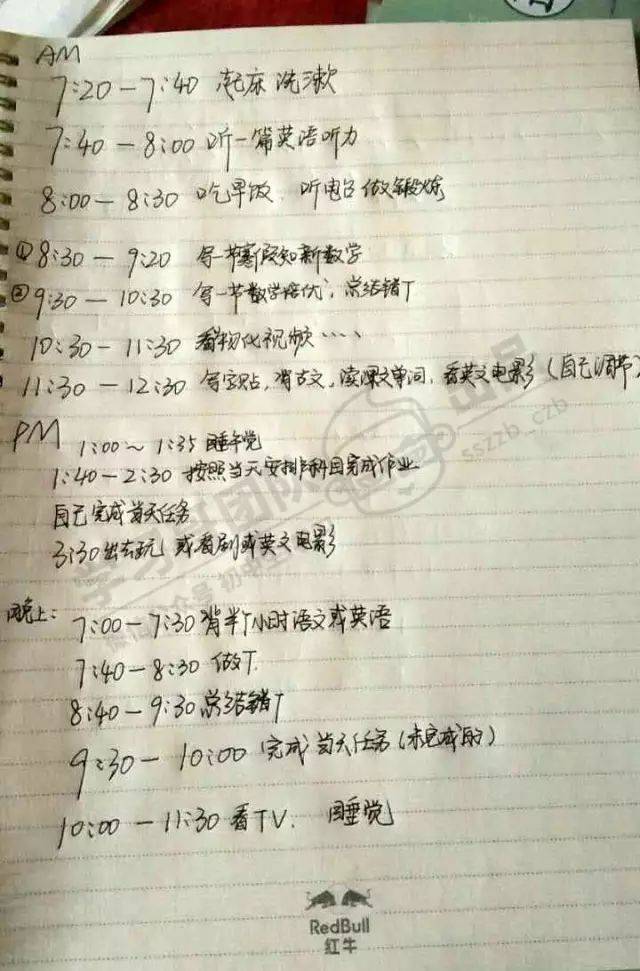 AM
7:20—7:40 起床洗漱
7:40—8:00 听一篇英语听力
8:00—8:30 吃早饭 听电台 做锻炼
①8:30—9:20 每一节寒假知新数学
②9:30—10:30 每一节数学培优，总结错T
10:30—11:30 看物化视频……
11:30—12:30 背古文，读课文单词，看英文电影（自己调节）
PM 1:00～1:35 睡午觉
1:40—2:30 按照当天安排科目完成作业
自己完成当天任务
3:30出去玩 或看剧或英文电影
晚上：7:00—7:30 背半个小时语文或英语
7:40—8:30 做T.
8:40—9:30 总结错T
9:30—10:00 完成当天任务（未完成的）
10:00—11:30 看TV. 睡觉
sszzb_czb
RedBull
红牛